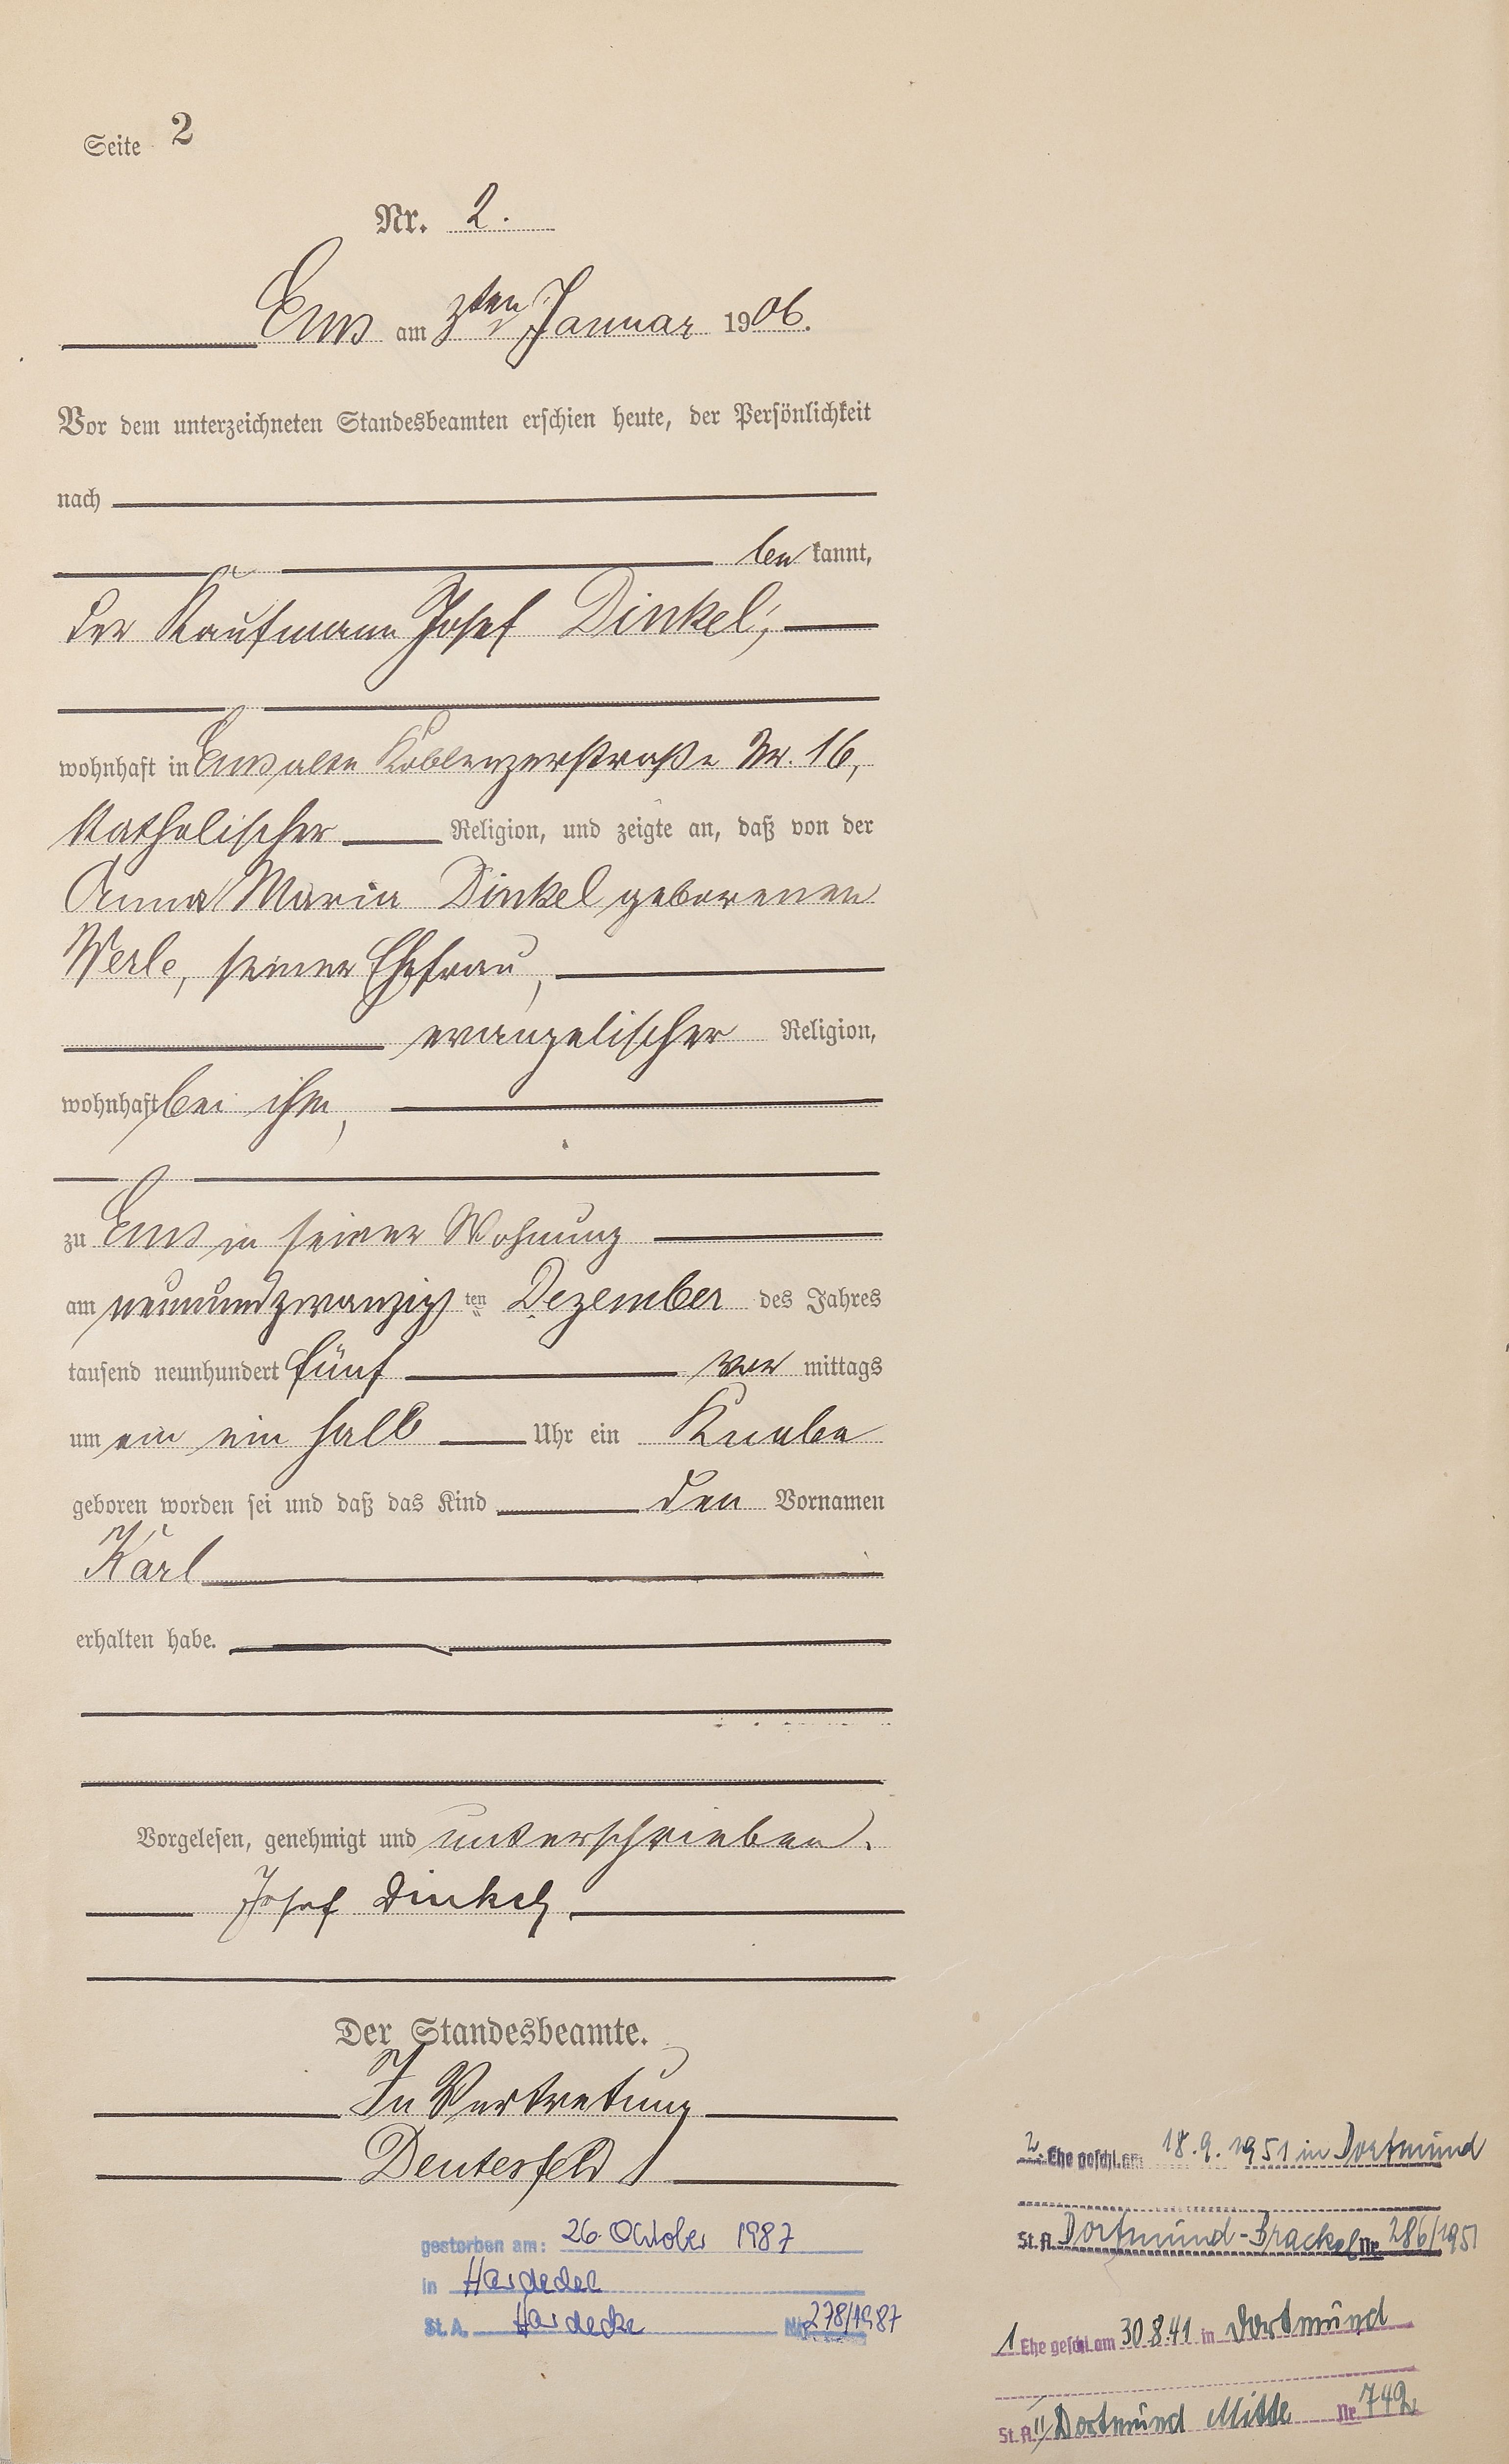 Seite 2
Nr. 2.
Ems am 3ten Januar 1906.
Vor dem unterzeichneten Standesbeamten erschien heute, der Persönlichkeit
nach
bekannt,
der Kaufmann Josef Dinkel,
wohnhaft in Ems alte Koblenzerstraße Nr. 16,
katholischer Religion, und zeigte an, daß von der
Anna Maria Dinkel geborenen
Werle, seiner Ehefrau,
evangelischer Religion,
wohnhaft bei ihm,
zu Ems in seiner Wohnung
am neunundzwanzigsten Dezember des Jahres
tausend neunhundert fünf vormittags
um ein ein halb Uhr ein Knabe
geboren worden sei und daß das Kind den Vornamen
Karl
erhalten habe.
Vorgelesen, genehmigt und unterschrieben.
Josef Dinkel
Der Standesbeamte.
In Vertretung
Deuterfeld
gestorben am: 26. Oktober 1987
in Herdecke
St. A. Herdecke Nr. 278/1987
2. Ehe geschl. am 18.9.1951 in Dortmund
St. A. Dortmund-Brackel Nr. 286/1951
1 Ehe geschl am 30.8.41 in Dortmund
St. A. Dortmund Mitte Nr. 749